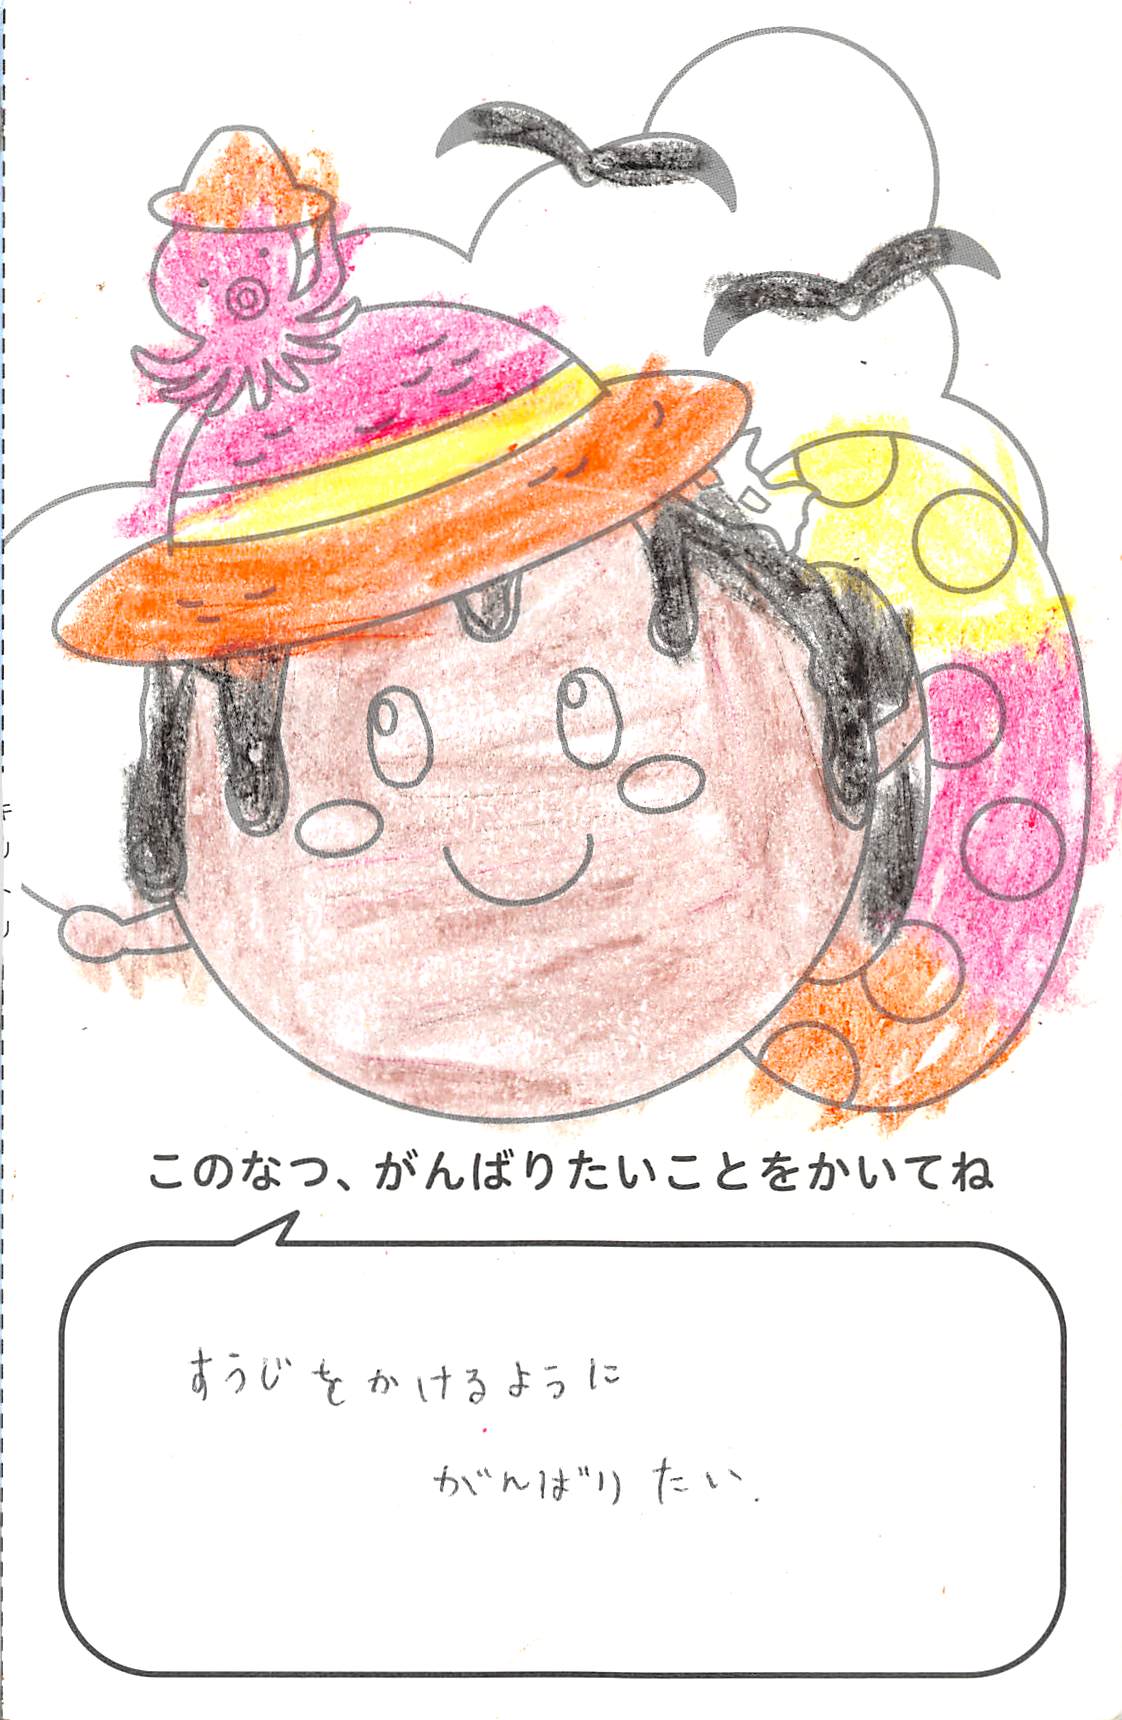 このなつ、がんばりたいことをかいてね
すうじをかけるように
がんばりたい.